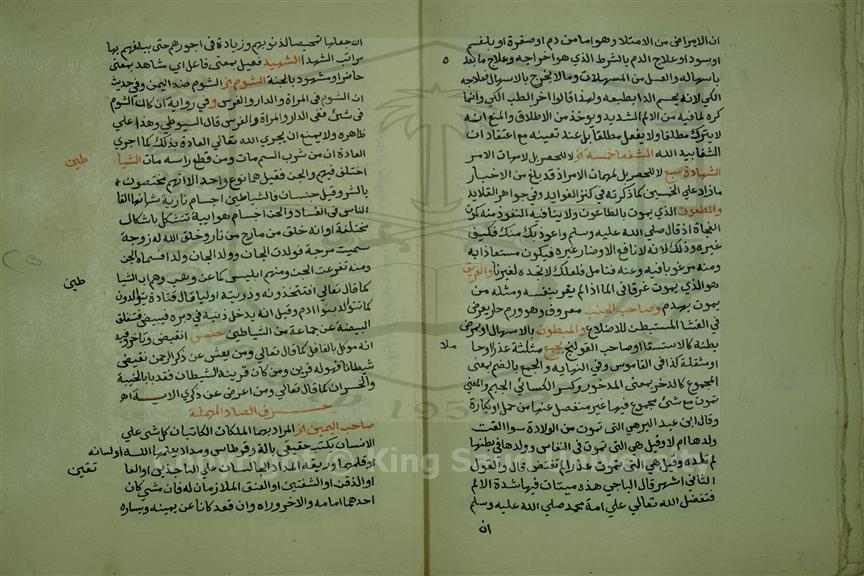 ان الامراض من الامتلا وهو اما من دم او صفرة او بلغم
او سودا وعلاج الدم بالشرط الذي هو اخراجه وعلاج ما بعد
باسهاله والعسل من المسهلات وما لا يخرج بالاسهال فعلاجه
الكي لانه يحسم الدا بطبعه ولهذا قالوا اخر الطب الكي وانما
كره لما فيه من الالم الشديد ويوخذ من الاطلاق والمنع انه
لا يترك مطلقا ولا يفعل مطلقا بل عند تعينه مع اعتقاد ان
الشفا بيد الله الشفعا خمسة الخ لا للحصر بل لامهات الامر
الشهادة سبع لا للحصر بل لمهمات الامراذ قد بلغ من الاخبار
ما زاد على الخمسين كما ذكرته في كنز الفوايد وفي جواهر القلايد
والمطعون الذي يموت بالطاعون ولا ينافيه التعوذ منه كموت
الفجاة اذ قال صلي الله عليه وسلم واعوذ بك منك فكيف
غيره وذلك لانه لا نافع الا وضار غيره فيكون مستعاذا به
ومنه مرغوبا فيه وعنه فتامل فلعلك لا تجده لغيرنا والغريق
هو الذي يموت غرقا في الما اذا لم يغرر بنفسه ومثله من
يموت بهدم وصاحب الجنب معروف وهو ورم حار يعرض
في الغشا المستبطن للاضلاع والمبطون بالاسهال او بمرض
بطنه كالاستسقا وصاحب القولنج بجمع مثلثة عذرا او حا
ملا
او مثقلة كذا في القاموس وفي النهاية والجمع بالضم بمعنى
المجموع كالدخر بمعنى المدخور وكسر الكسائي الجيم والمعني
تموت مع شئ مجموع فيها غير منفصل عنها من حمل او بكارة
وقال ابن عبد البر هي التي تموت من الولادة سوا القت
ولدها ام لا وقيل هي التي تموت في النفاس وولدها في بطنها
لم تلده وقيل هي التي تموت عذرا لم تفتض قال والقول
الثاني اشهر قال الباجي هذه ميتات فيها شدة الالم
فتفضل الله تعالي علي امة محمد صلي الله عليه وسلم
ان
ان جعلها تمحيصا لذنوبهم وزيادة في اجورهم حتى يبلغهم بها
مراتب الشهدا الشهيد فعيل بمعنى فاعل اي شاهد بمعنى
حاضر او مشهود بالجنة الشوم الخ الشوم ضد اليمن وفي حديث
ان الشوم في المراة والدار والفرس وفي رواية ان كان الشوم
في شئ ففي الدار والمراة والفرس قال السيوطي وهذا علي
ظاهره ولا يمنع ان يجري الله تعالي العادة بذلك كما اجري
العادة ان من شرب السم مات ومن قطع راسه مات الشيا
طين
اختلف فيهم والجن فقيل هما نوع واحد الا انهم مختصون
بالشر وقيل جنسان فالشياطين اجسام نارية شانها القا
الناس في الفساد والجن اجسام هوايية تتشكل باشكال
مختلفة وانه خلق من مارج من نار وخلق الله له زوجة
سميت مرجة فولدت الجان وولد الجان ولدا فسماه الجن
ومنه تفرعت الجن ومنهم ابليس وهم الشيا
طين
كما قال تعالي افتتخذونه وذريته اوليا قال قتادة يتوالدون
كما تتوالد بنوا ادم وقيل انه يدخل ذنبه في دبره فيبيض فتنفلق
البيضة عن جماعة من الشياطين
انه موكل بالغافل كما قال تعالي ومن يعش عن ذكر الرحمن نقيض
شيطانا فهو له قرين ومن كان قرينه الشيطان فقد با بالخيبة
والخسران كما قال تعالي ومن اعرض عن ذكري الاية اه
حرف الصاد المهملة
صاحب اليمين الخ المراد بهما الملكان الكاتبان كل شئ علي
الانسان بكتب حقيقي بالة وقرطاس ومداد يعلمها الله او لسانه
او قلمهما وريقه المداد علي الناجذين او العا
تقين
او الذقن او الشفتين او العنق الملازمان له فان مشي كان
احدهما امامه والاخر وراه وان قعد كانا عن يمينه ويساره
© King Saud University